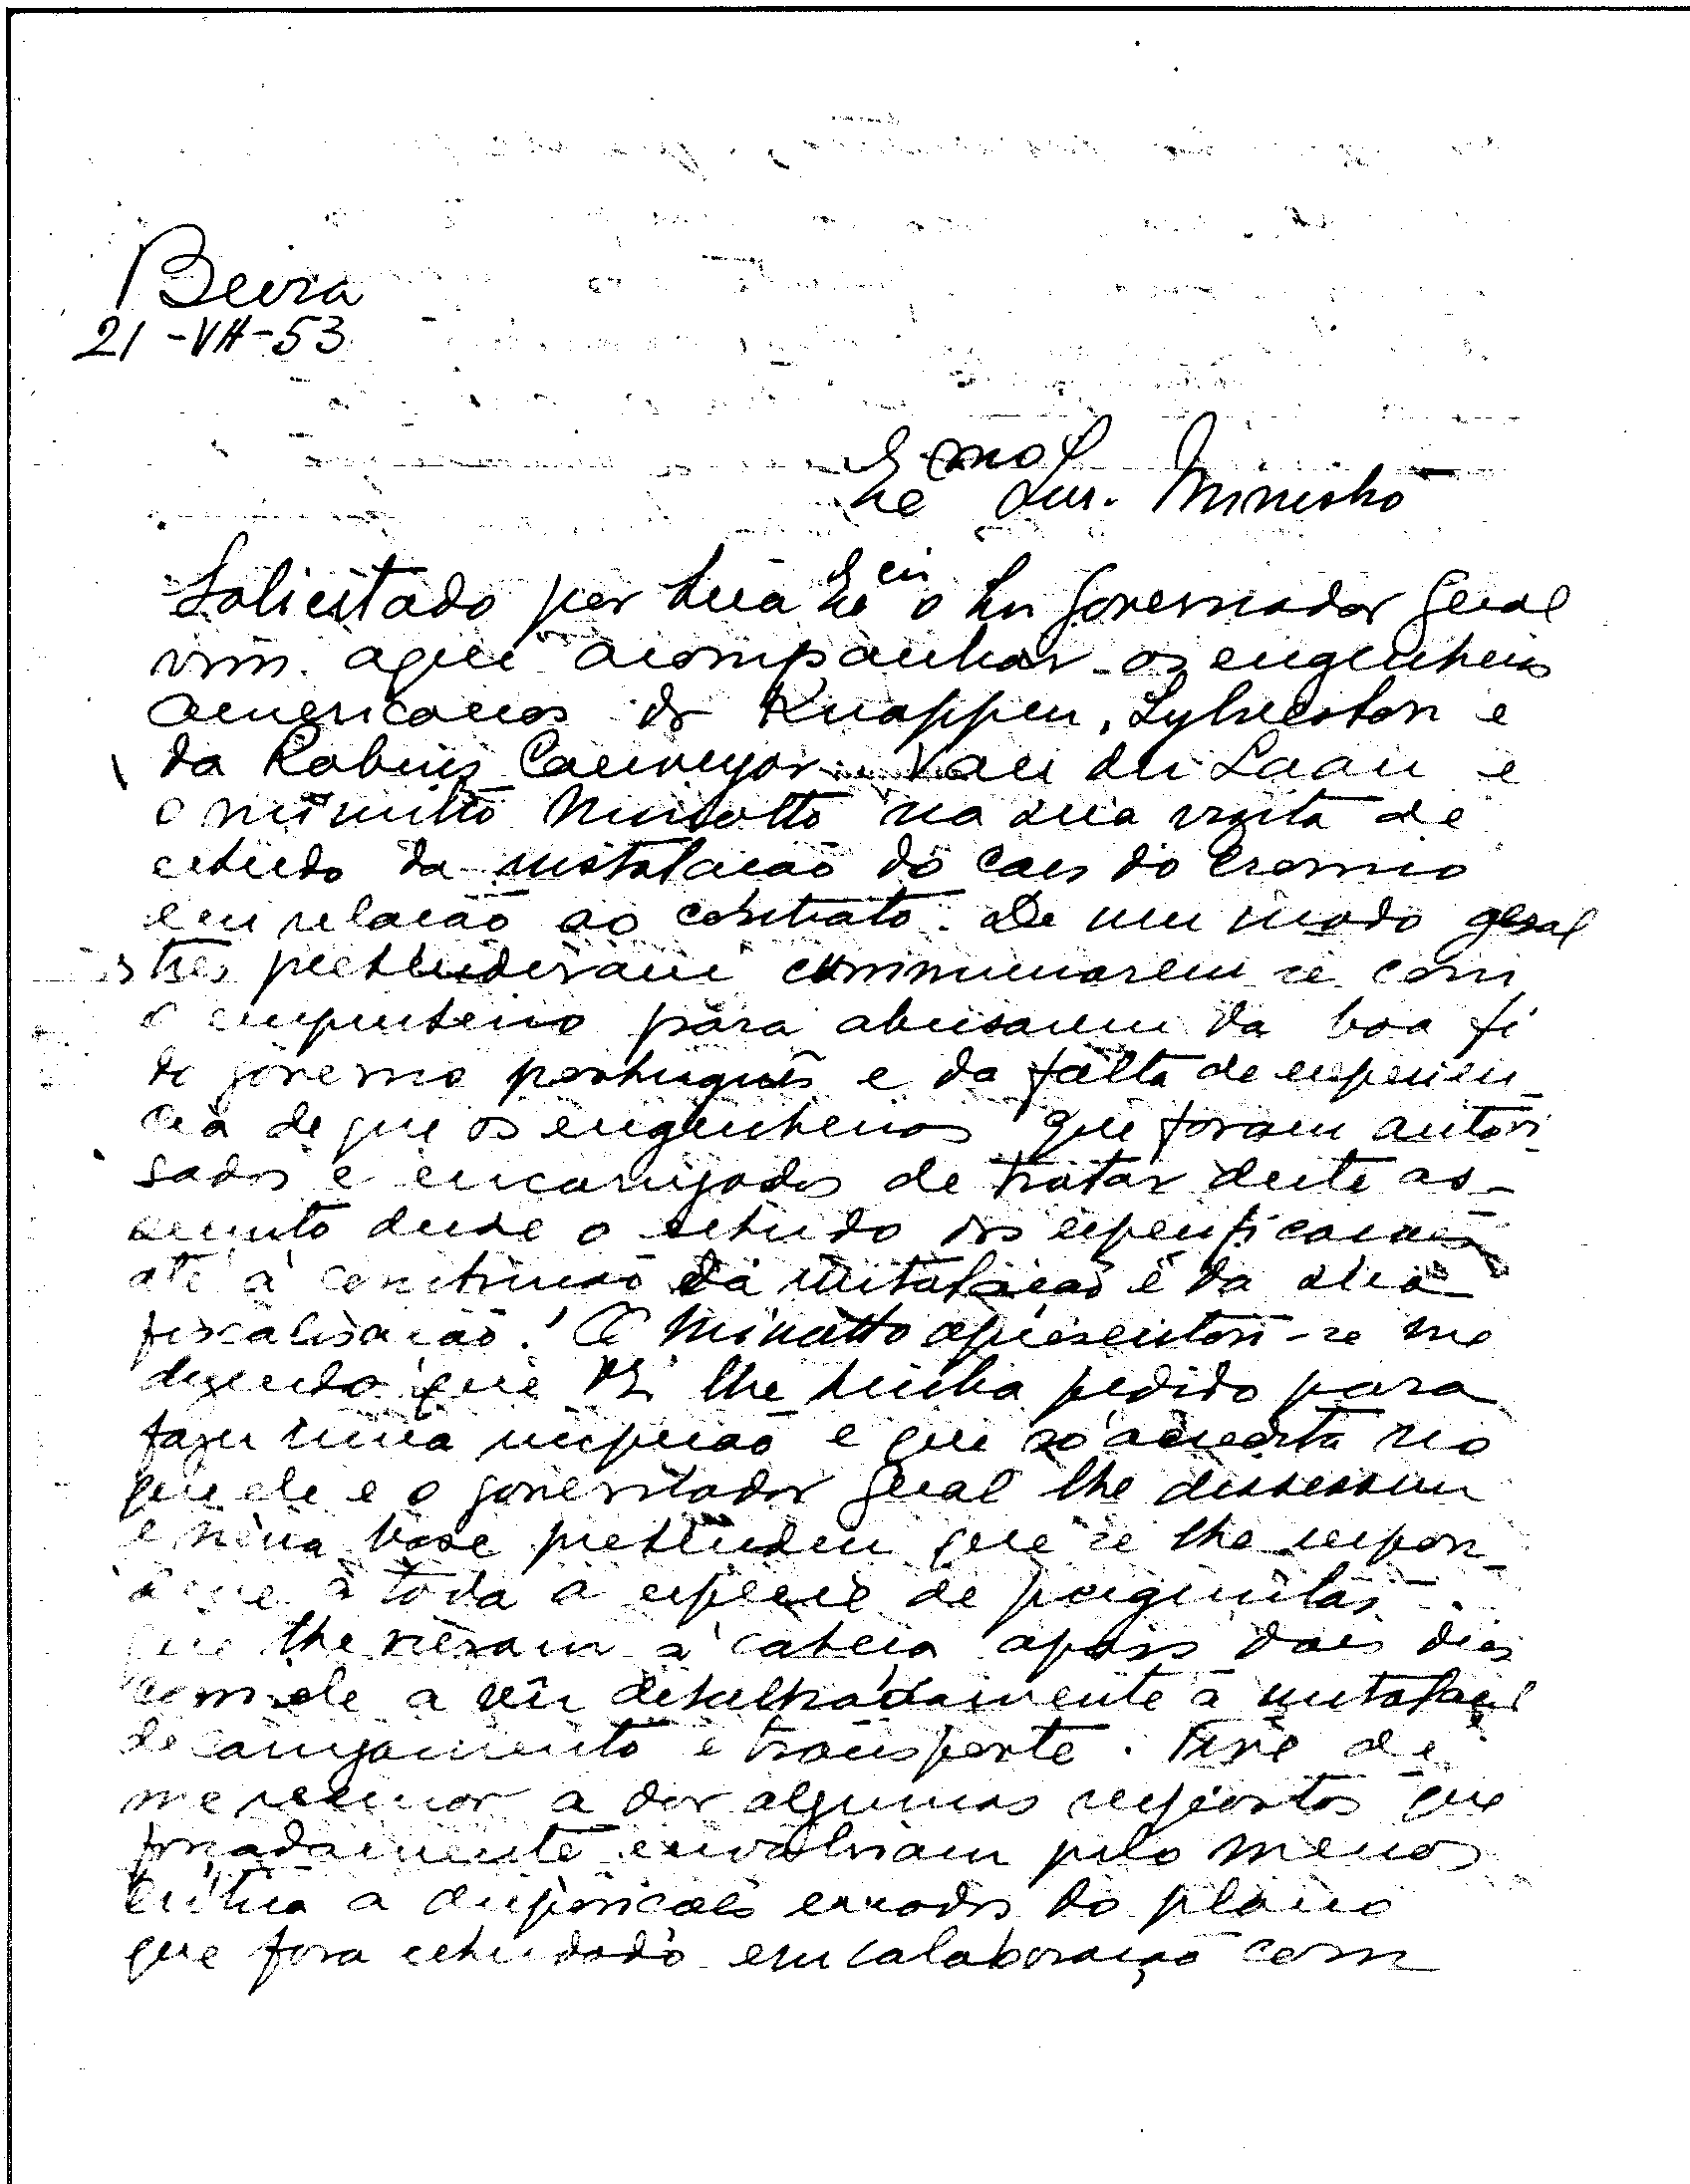 Beira
21-VII-53
Exmo
Snr. Ministro
Solicitado por Sua Excia o Snr Governador Geral
vim aqui acompanhar os engenheiros
americanos da Knappen,
da Robins Conveyor Van der Laan e
o na sua visita de
estudo da instalacao do caes do cromio
em relacão ao contrato. De um modo geral
os tres pretenderam com
o empreiteiro para abusarem da boa fé
do governo português e da falta de experien
cia de que os engenheiros que foram autori
sados e encarregados de tratar deste as-
sunto desde o estudo das especificacoes
até à construcao da instalacao e da sua
fiscalisacao! O Minotto apresentou-se me
dizendo que lhe tinha pedido para
fazer uma inspecao e que só acredita no
que ele e o governador geral lhe dissessem
e nessa base pretendeu que se lhe respon-
desse a toda a especie de perguntas
que lhe vieram à cabeca apos dois dias
com ele a ver detalhadamente a instalacao
de carregamento e transporte. Tive de
me a dar algumas respostas que
forcadamente envolviam pelo menos
critica a disposicoes erradas do plano
que fora estudado em colaboração com